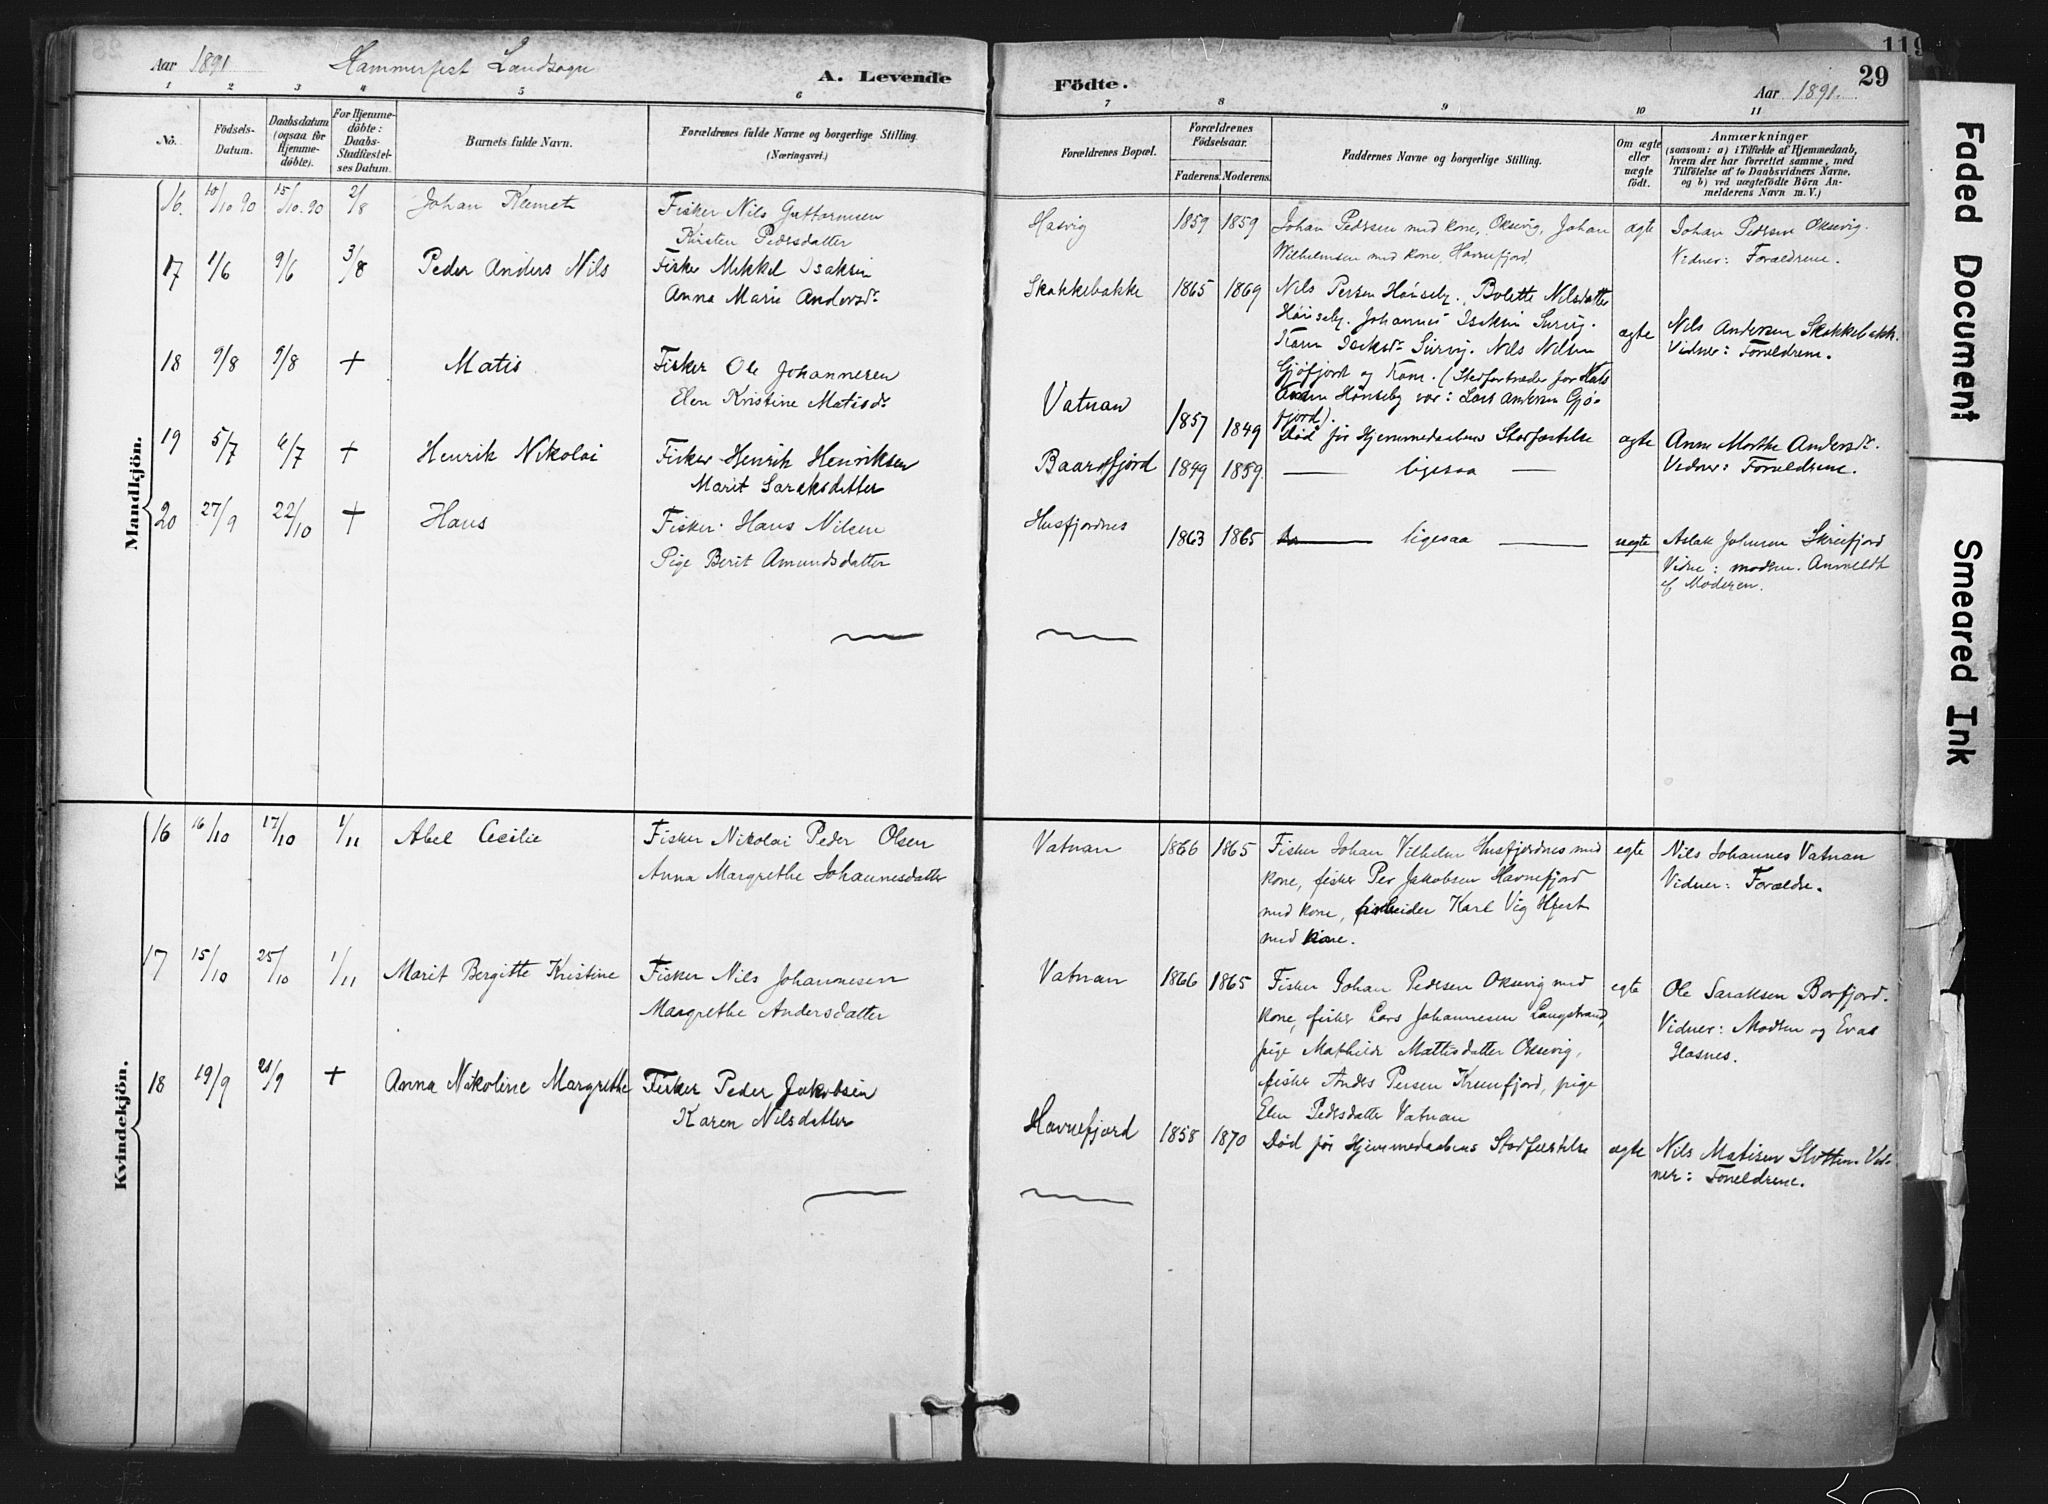 Aar 1891 Hammerfest Landsogn A. Levende
1 2 3 4 5 6
No.
Födsels-
Datum.
Daabsdatum
(ogsaa for
Hjemme-
döbte).
For Hjemme-
döbte:
Daabs-
Stadfæstel-
ses Datum.
Barnets fulde Navn.
Forældrenes fulde Navne og borgerlige Stilling.
(Næringsvei.)
Mandkjön.
16. 10/10 90 15/10. 90 2/8 Johan Klemet Fisker Nils Guttormsen
Kirsten Pedersdatter
17 1/6 9/6 3/8 Peder Anders Nils Fisker Mikkel Isaksen
Anna Marie Andersdr
18 9/8 9/8 + Matis Fisker Ole Johannesen
Elen Kristine Matisdr
19 5/7 6/7 + Henrik Nikolai Fisker Henrik Henriksen
Marit Saraksdatter
20 27/9 22/10 + Hans Fisker Hans Nilsen
Pige Berit Amundsdatter
Kvindekjön.
16 16/10 17/10 1/11 Abel Cecilie Fisker Nikolai Peder Olsen
Anna Margrethe Johannesdatter
17 15/10 25/10 1/11 Marit Bergitte Kristine Fisker Nils Johannesen
Margrethe Andersdatter
18 19/9 21/9 + Anna Nikoline Margrethe Fisker Peder Jakobsen
Karen Nilsdatter
Födte. Aar 1891.
119
29
7 8 9 10 11
Forældrenes Bopæl.
Forældrenes
Födselsaar.
Faderens. Moderens.
Faddernes Navne og borgerlige Stilling.
Om ægte
eller
uægte
födt.
Anmærkninger
(saasom: a) i Tilfælde af Hjemmedaab,
hvem der har forrettet samme, med
Tilföielse af to Daabsvidners Navne.
og b) ved uægtefödte Börn An-
melderens Navn m. V.)
Hasvig 1859 1859 Johan Pedersen med kone, Oksevig, Johan ægte Johan Pedersen Oksevig.
Wilhelmsen med kone, Havnefjord. Vidner: Forældrene.
Skakkebakke 1865 1869 Nils Persen Hönseby. Bolette Nilsdatter
Hönseby. Johannes Isaksen Survig. ægte Nils Andersen Skakkebakk.
Karen Isaksdr Survig. Nils Nilsen Vidner: Forældrene.
Gjøfjord og Kone. (Stedfortræder for
Hönseby var: Lars Andersen Gjø-
fjord).
Vatnan 1857 1849 Død før Hjemmedaabens Stadfæstelse ægte Anne Marthe Andersdr.
Vidner: Forældrene.
Baarsfjord 1849 1859. — ligesaa —
Husfjordnes 1863 1865 — ligesaa — uægte Aslak Johnsen Skreifjord
Vidne: modren. Anmeldt
af Moderen.
Vatnan 1866 1865 Fisker Johan Vilhelm Husfjordnes med egte Nils Johannes Vatnan
kone, fisker Per Jakobsen Havnefjord Vidner: Forældre.
med kone, arbeider Karl Vig Hfest
med kone.
Vatnan 1866 1865 Fisker Johan Pedersen Oksevig med egte Ole Saraksen Borfjord.
kone, fisker Lars Johannesen Langstrand, Vidner: Modren og Evas
pige Mathilde Mattisdatter Oksevig,
fisker Anders Persen pige
Elen Pedersdatter Vatnan
Havnefjord 1858 1870 Død før Hjemmedaabens Stadfæstelse ægte Nils Matisen Slotten. Vid-
ner: Forældrene.
Faded Document
Smeared Ink